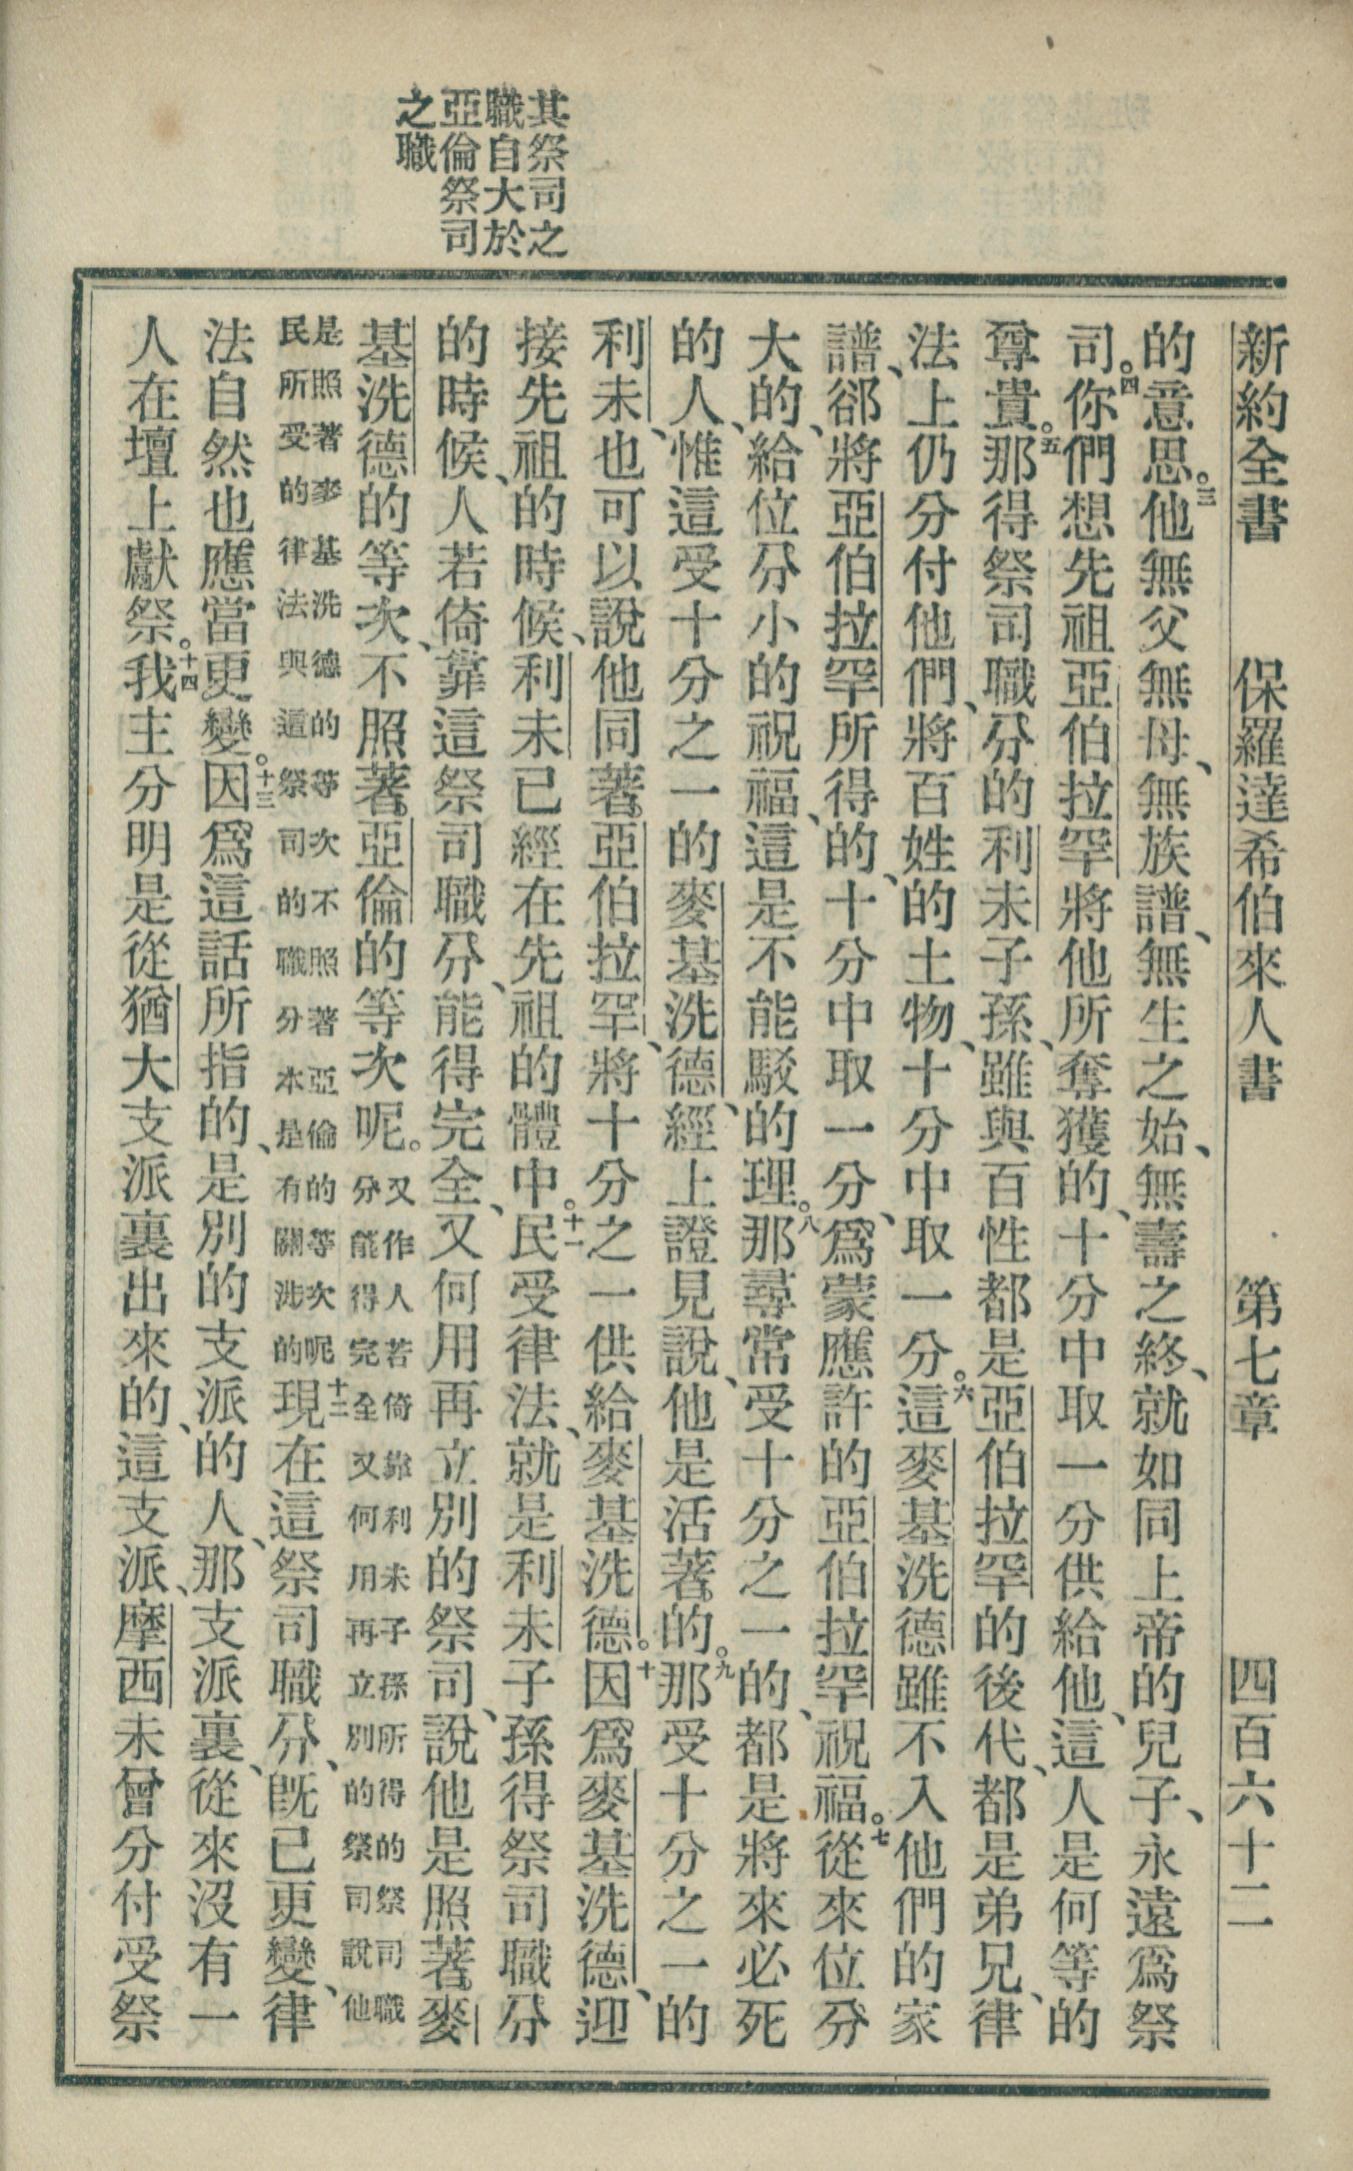 新約全書 保羅達希伯來人書 第七章 四百六十二
其祭司之
職自大於
亞倫祭司
之職
的意思。三他無父無母、無族譜、無生之始、無壽之終、就如同上帝的兒子、永遠爲祭
司。四你們想先祖亞伯拉罕將他所奪獲的、十分中取一分供給他、這人是何等的
尊貴。五那得祭司職分的利未子孫、雖與百性都是亞伯拉罕的後代、都是弟兄、律
法上仍分付他們、將百姓的土物、十分中取一分。六這麥基洗德雖不入他們的家
譜、郤將亞伯拉罕所得的、十分中取一分、爲蒙應許的亞伯拉罕祝福。七從來位分
大的、給位分小的祝福、這是不能駁的理。八那尋常受十分之一的、都是將來必死
的人、惟這受十分之一的麥基洗德、經上證見說、他是活著的。九那受十分之一的
利未、也可以說他同著亞伯拉罕、將十分之一供給麥基洗德。十因爲麥基洗德、迎
接先祖的時候、利未已經在先祖的體中。十一民受律法、就是利未子孫得祭司職分
的時候、人若倚靠這祭司職分、能得完全、又何用再立別的祭司、說他是照著麥
基洗德的等次、不照著亞倫的等次呢。又作人若倚靠利未子孫所得的祭司職
分能得完全又何用再立別的祭司說他
是照著麥基洗德的等次不照著亞倫的等次呢
民所受的律法與這祭司的職分本是有關涉的十二現在這祭司職分、旣已更變、律
法自然也應當更變。十三因爲這話所指的、是別的支派的人、那支派裏、從來沒有一
人在壇上獻祭。十四我主分明是從猶大支派裏出來的、這支派、摩西未曾分付受祭